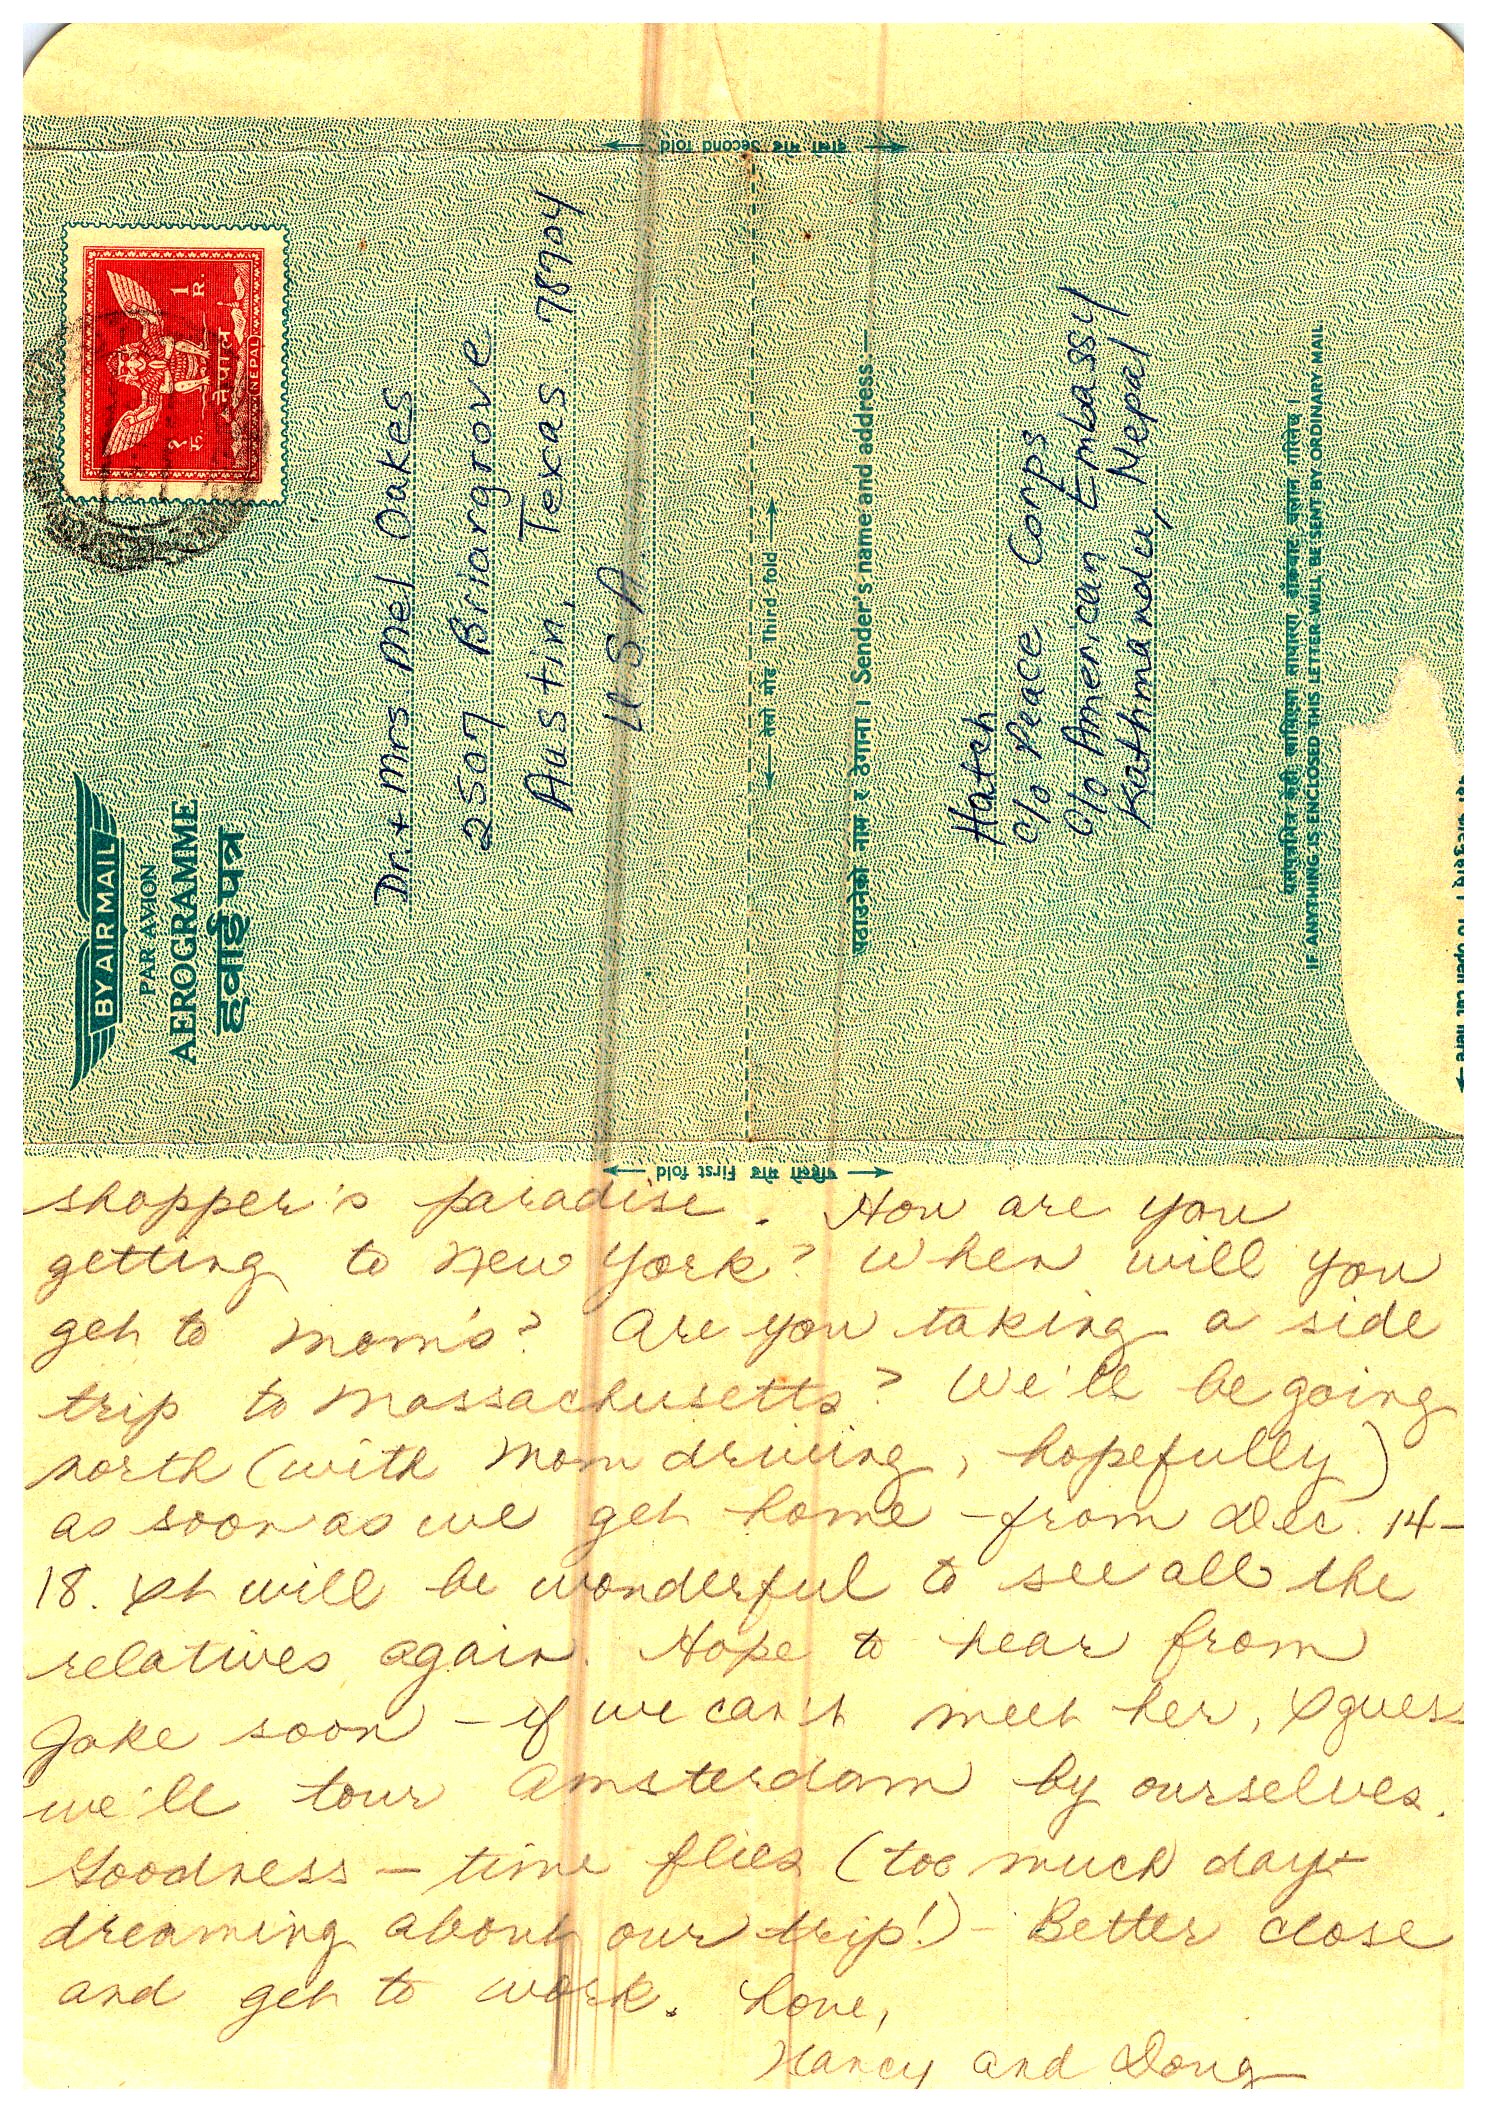 BY AIR MAIL
PAR AVION
AEROGRAMME
हवाई पत्र
१ रु.
1 R.
नेपाल
NEPAL
Dr. + Mrs Mel Oakes
2507 Briargrove
Austin, Texas 78704
U.S.A.
दोस्रो मोड Second fold
तेस्रो मोड Third fold
पठाउनेको नाम र ठेगाना । Sender's name and address:—
Hatch
c/o Peace Corps
c/o American Embassy
Kathmandu, Nepal
IF ANYTHING IS ENCLOSED THIS LETTER WILL BE SENT BY ORDINARY MAIL
To open cut here
पहिलो मोड First fold
shopper's paradise. How are you
getting to New York? When will you
get to Mom's? Are you taking a side
trip to Massachusetts? We'll be going
north (with Mom driving, hopefully)
as soon as we get home - from Dec. 14-
18. It will be wonderful to see all the
relatives again. Hope to hear from
Jake soon - if we can't meet her, I guess
we'll tour Amsterdam by ourselves.
Goodness - time flies (too much day-
dreaming about our trip!) - Better close
and get to work. Love,
Nancy and Doug